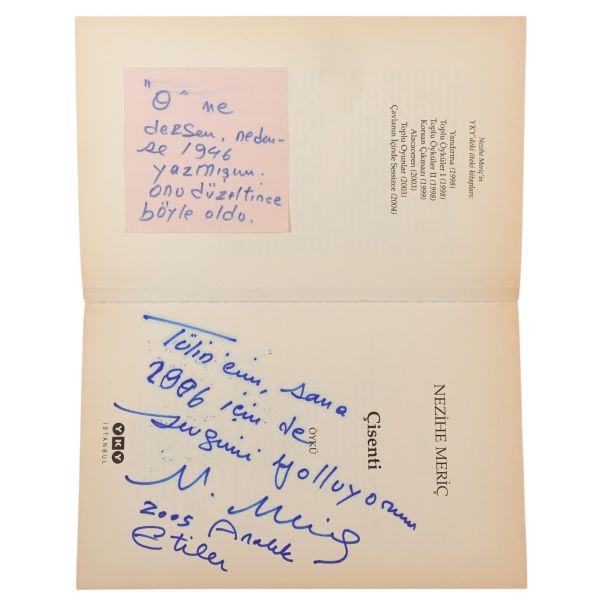 "O" ne
dersen, neden-
se 1946
yazmışım.
onu düzeltince
böyle oldu.
Nezihe Meriç'in
YKY'deki öteki kitapları:
Yandırma (1998)
Toplu Öyküler I (1998)
Toplu Öyküler II (1998)
Korsan Çıkmazı (1999)
Alacaceren (2003)
Toplu Oyunlar (2003)
Çavlanın İçinde Sessizce (2004)
NEZİHE MERİÇ
Çisenti
ÖYKÜ
YKY
İSTANBUL
Tülin'cim, sana
2006 için de
sevgimi yolluyorum
N. Meriç
2005 Aralık
Etiler